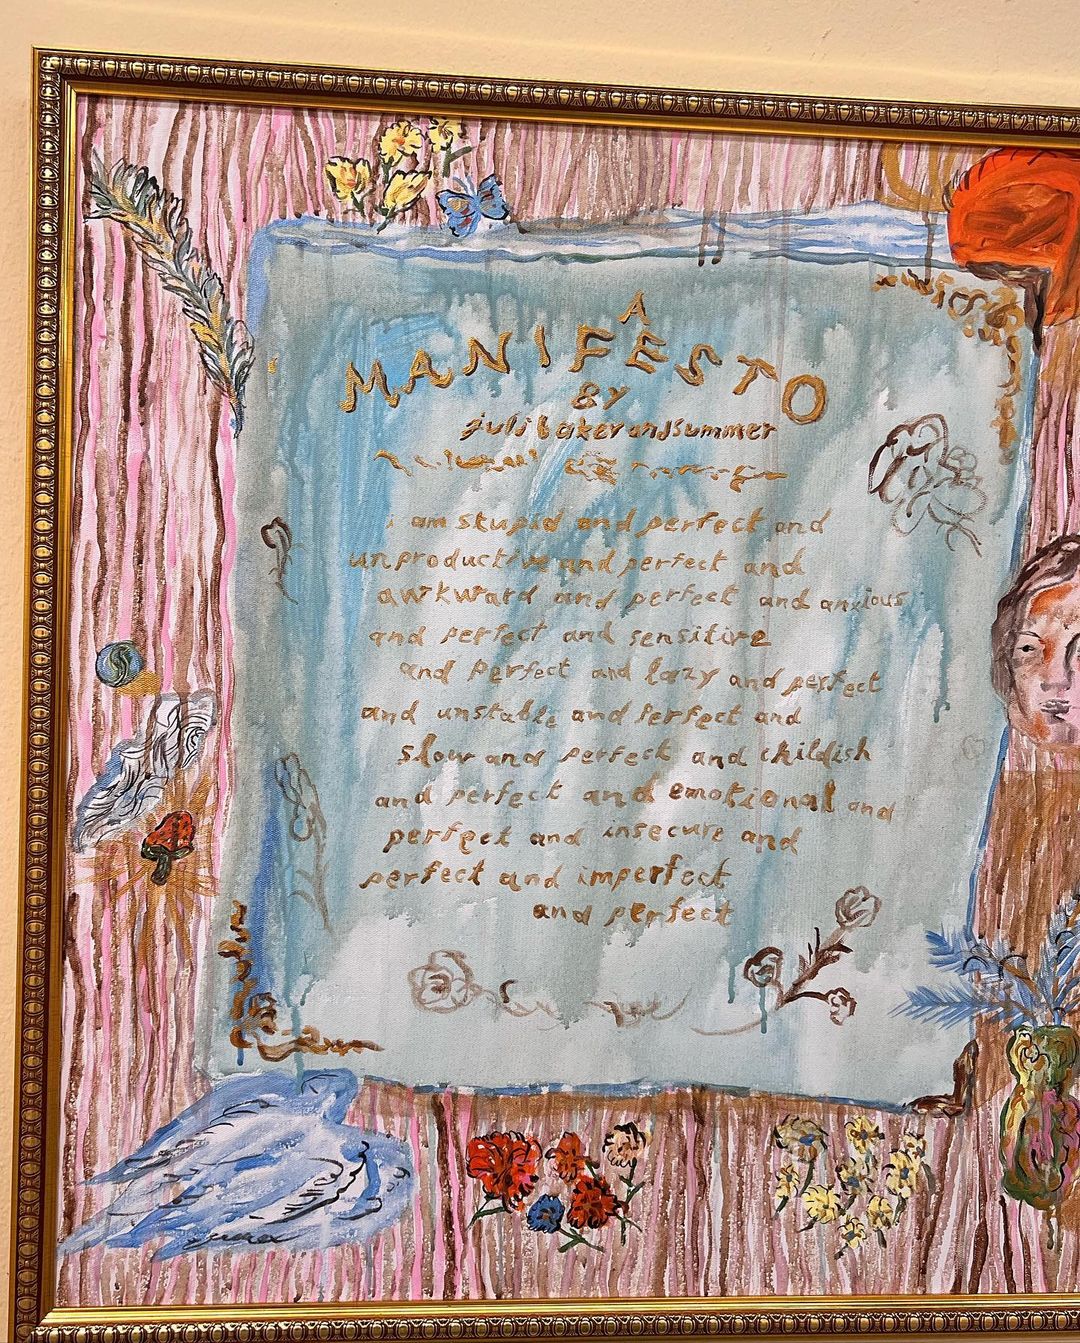 A
MANIFESTO
BY
juli baker and summer
i am stupid and perfect and
unproductive and perfect and
awkward and perfect and anxious
and perfect and sensitive
and perfect and lazy and perfect
and unstable and perfect and
slow and perfect and childish
and perfect and emotional and
perfect and insecure and
perfect and imperfect
and perfect